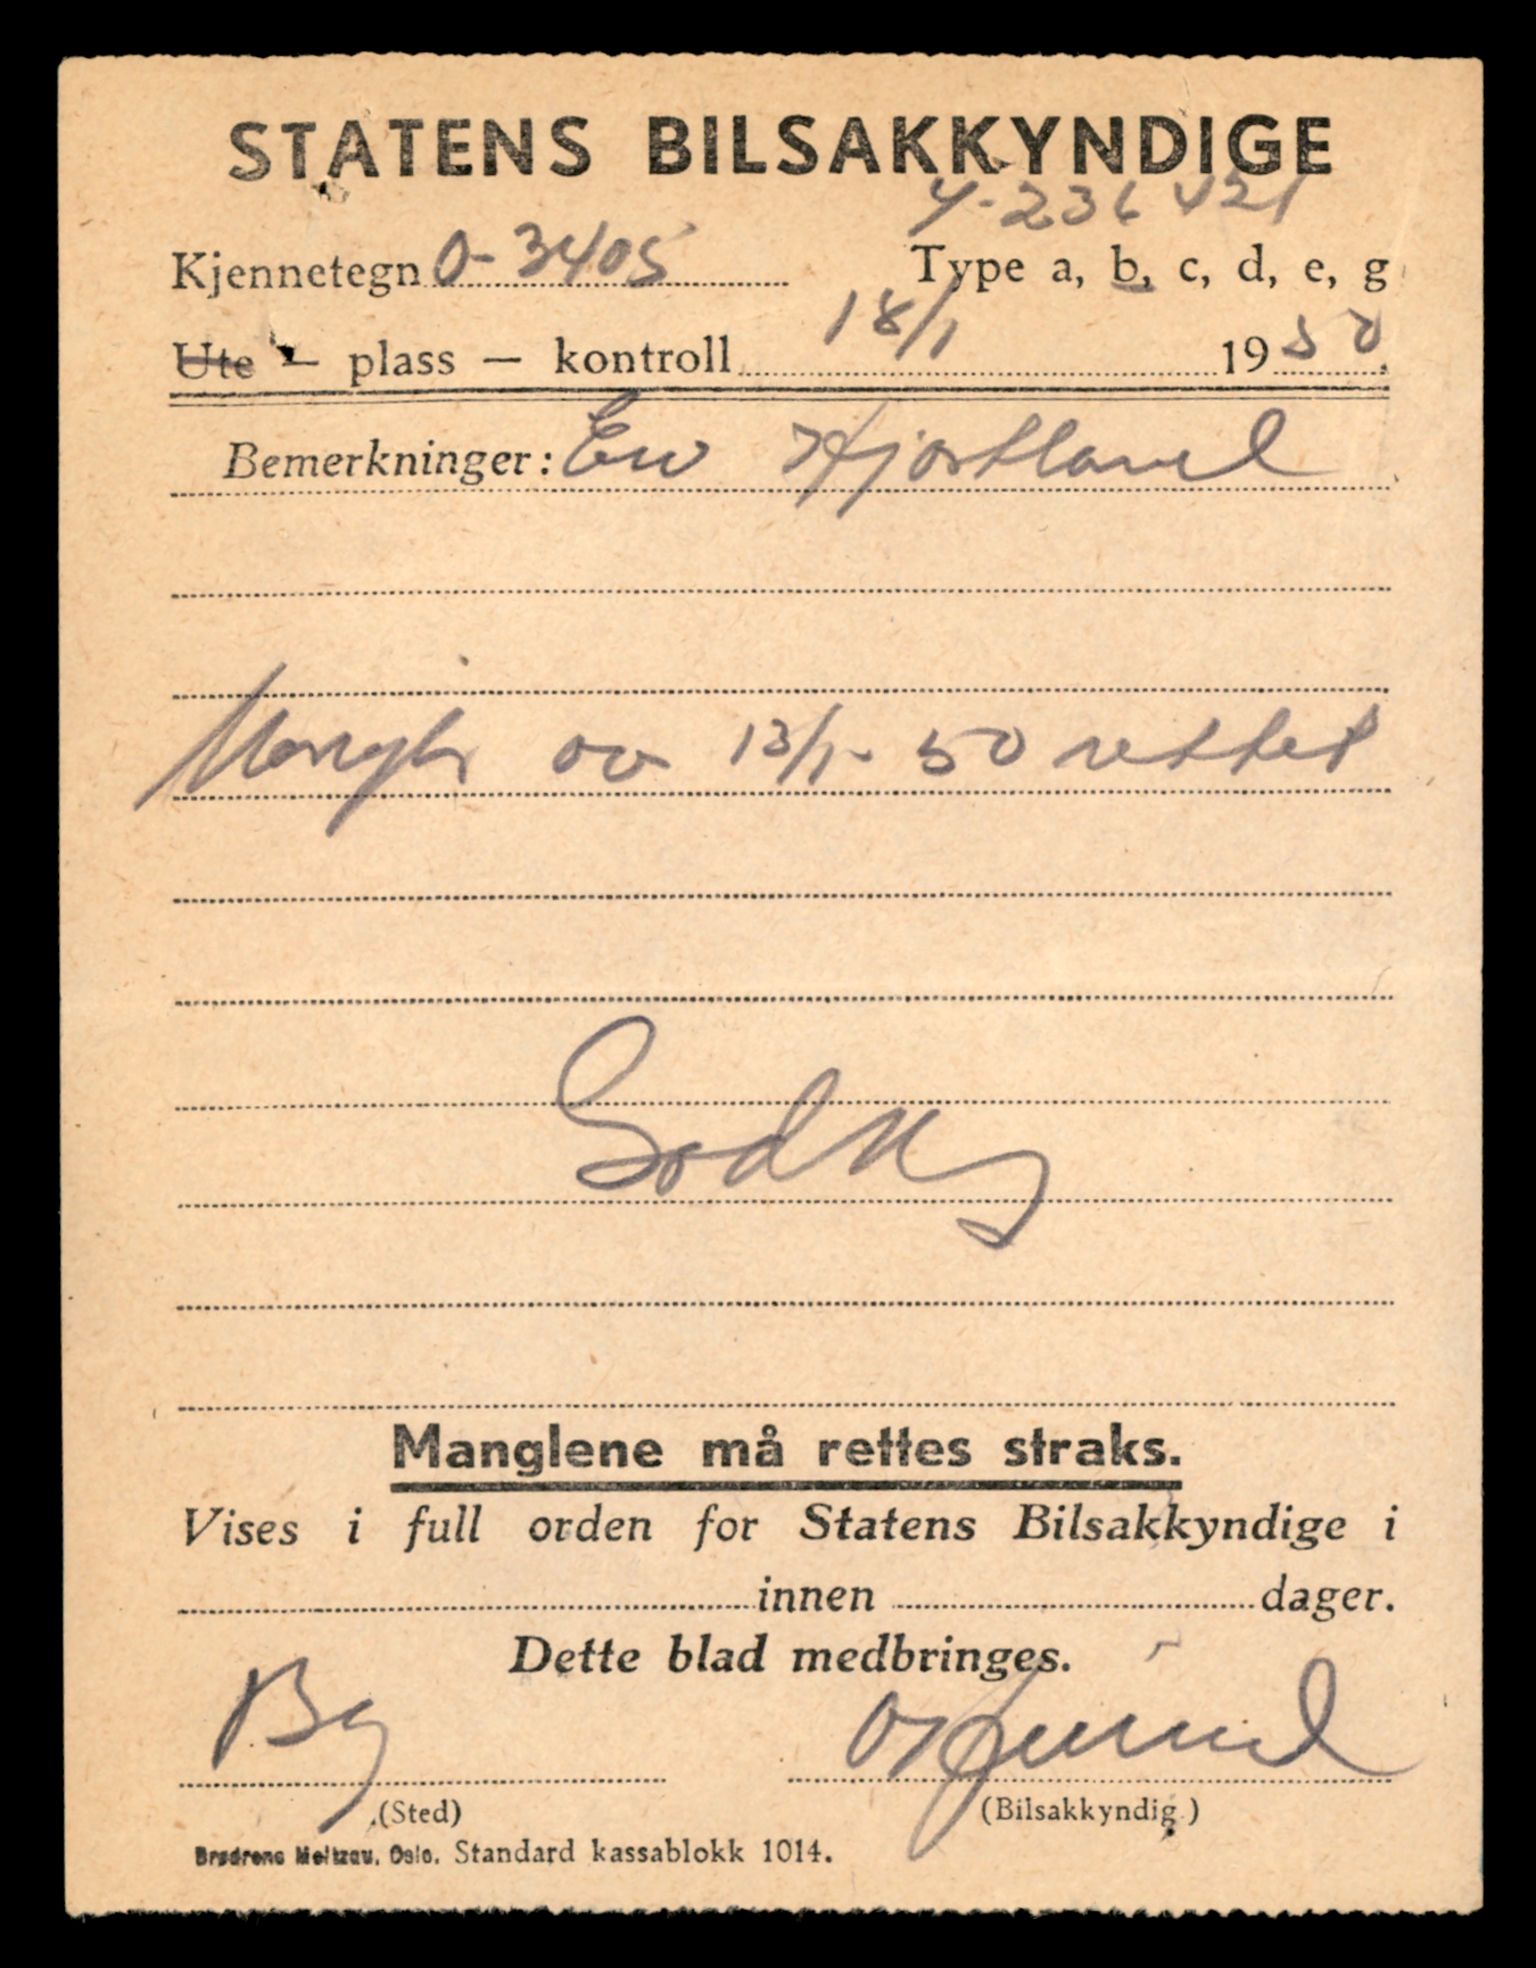 STATENS BILSAKKYNDIGE
4-236421
Kjennetegn O-3405 Type a, b, c, d, e, g
Ute – plass – kontroll 18/1 1950.
Bemerkninger: Hjortland
Mangler av 13/1-50 rettet
Godkj
Manglene må rettes straks.
Vises i full orden for Statens Bilsakkyndige i
innen dager.
Dette blad medbringes.
Bg
(Sted) (Bilsakkyndig)
Brødrene Meltzau, Oslo. Standard kassablokk 1014.